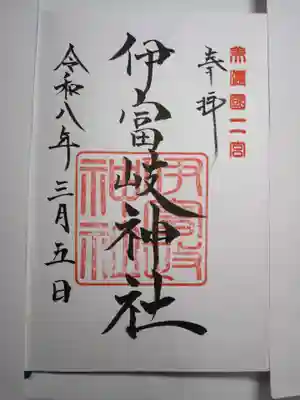 美濃國二宮
奉拝
伊富岐神社
伊富岐神社
令和八年三月五日